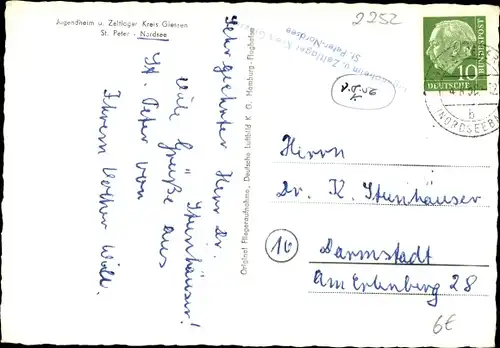 Jugendheim u. Zeltlager Kreis Giessen
St. Peter - Nordsee
Sehr geehrter Herr Dr.
Steinhäuser!
Viele Grüße aus
St. Peter von
Ihrem
Original Fliegeraufnahme, Deutsche Luftbild K G, Hamburg-Flughafen
2252
Jugendheim u. Zeltlager Kreis Giessen
St. Peter-Nordsee
10
DEUTSCHE
BUNDESPOST
b
(NORDSEEB
Herrn
Dr. K. Steinhäuser
16
Darmstadt
Am Erlenberg 28
6€